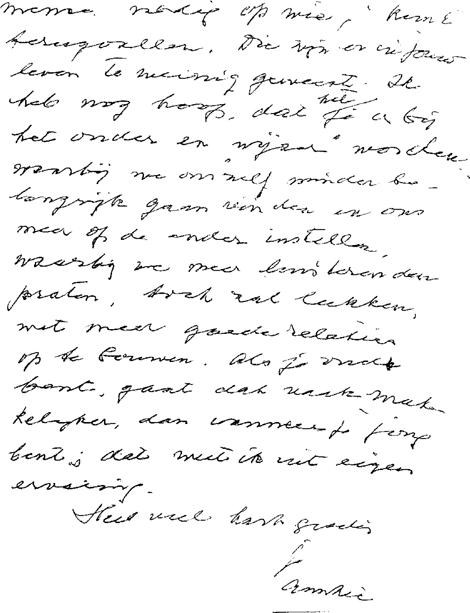 mens nodig op wie je kunt
terugvallen. Die zijn er in jouw
leven te weinig geweest. Ik
heb nog hoop, dat het je bij
het ouder en "wijzer" worden,
waarbij we ons zelf minder be-
langrijk gaan vinden en ons
meer op de ander instellen,
waarbij we meer luisteren dan
praten, toch zal lukken,
wat meer goede relaties
op te bouwen. Als je oud
bent, gaat dat vaak mak-
kelijker, dan wanneer je jong
bent; dat weet ik uit eigen
ervaring.
Heel veel hartgroeten
je